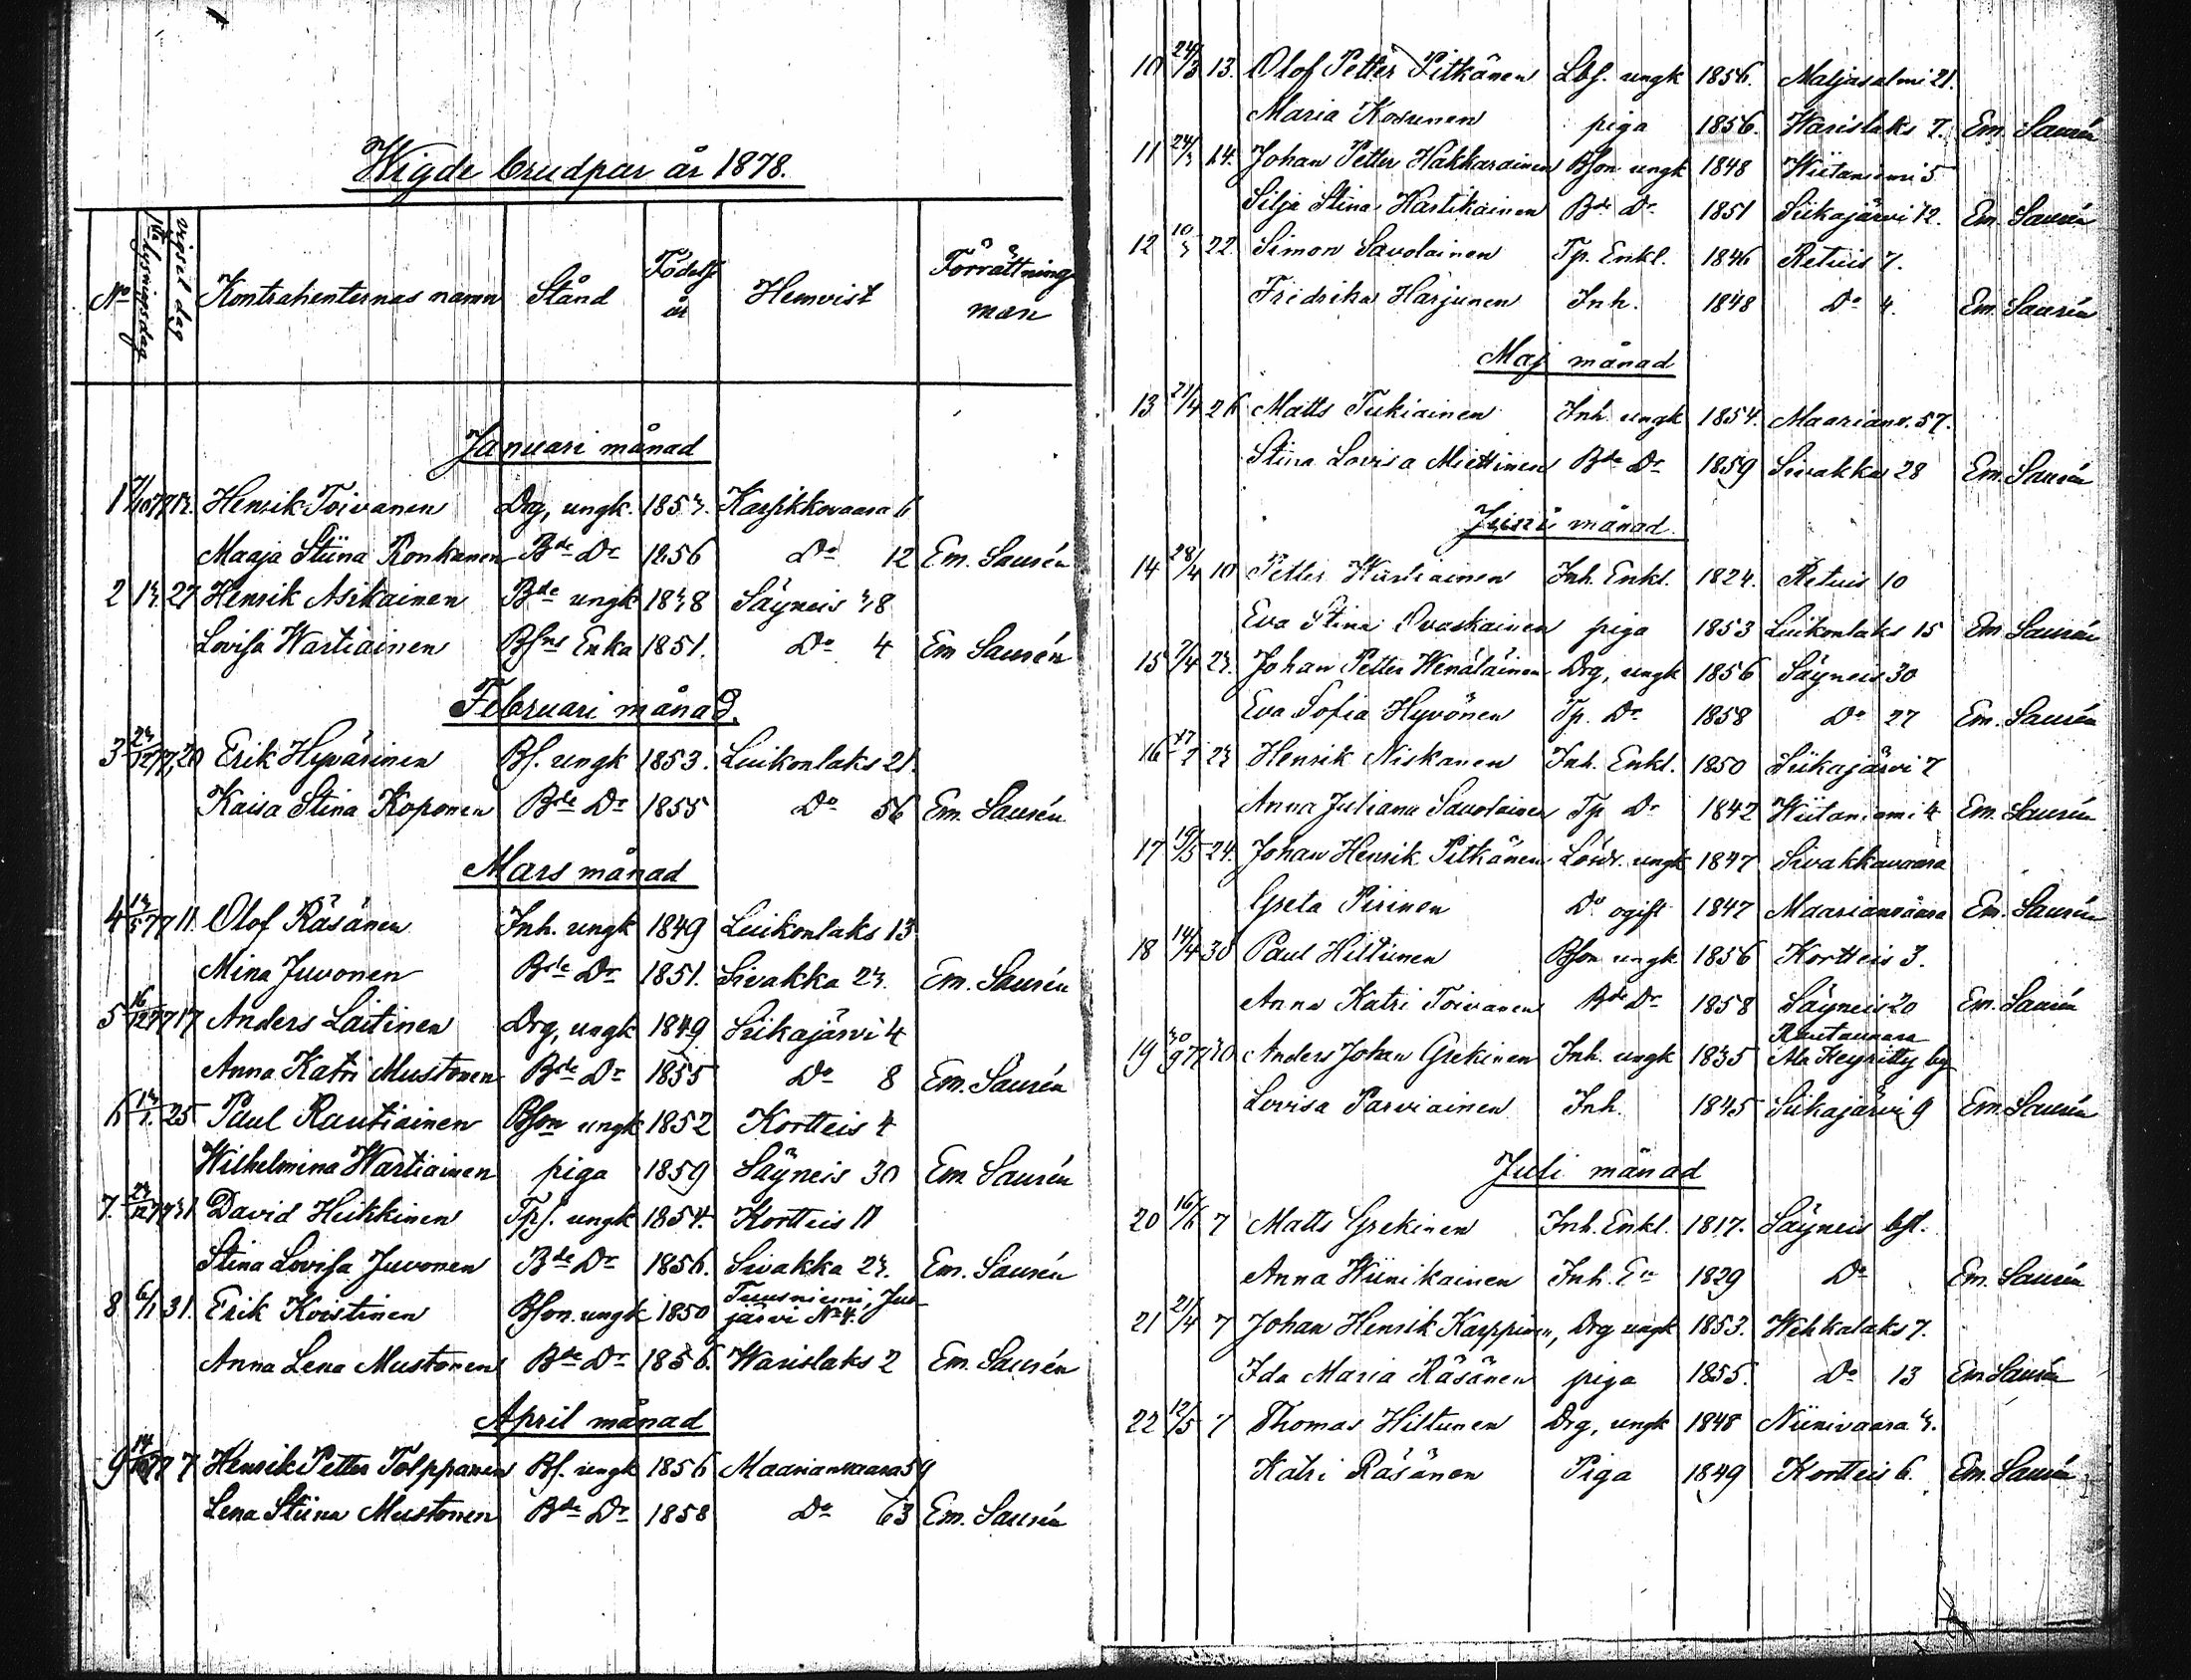 Wigde brudpar år 1878.
No 1sta lysningsdag vigsel dag Kontrahenternas namn Stånd Födelse år Hemvist Förrättnings man
Januari månad
1 Henrik Toivanen Drg, ungk. 1853. Karsikkovaara 6
Maaja Stiina Ronkanen Bde Dr 1856 Do 12 Em. Saurén
2 13. 27 Henrik Asikainen Bde ungk 1838 Säyneis 38
Lovisa Wartiainen Bsns Enka 1851. Do 4 Em Saurén
Februari månad.
3 23/12 77, 20 Erik Hyvärinen Bs. ungk 1853. Luikonlaks 21.
Kaisa Stina Koponen Bde Dr 1855 Do 56 Em. Saurén
Mars månad
4 77 11. Olof Räsänen Inh. ungk 1849 Luikonlaks 13
Mina Juvonen Bde Dr 1851. Sivakka 23. Em. Saurén
5 16/12 77 17 Anders Laitinen Drg, ungk 1849 Siikajärvi 4
Anna Katri Mustonen Bde Dr 1855 Do 8 Em. Saurén
6 13/1. 25 Paul Rautiainen Bson ungk 1852 Kortteis 4
Wilhelmina Wartiainen piga 1859 Säyneis 30 Em Saurén
7. 23/12 77 31 David Heikkinen Tps. ungk 1854. Kortteis 11
Stina Lovisa Juvonen Bde Dr 1856. Sivakka 23. Em. Saurén
8 6/1 31. Erik Koistinen Bson. ungk 1850 Tuusniemi, Jus-
järvi No 4.
Anna Lena Mustonen Bde Dr 1856. Warislaks 2 Em. Saurén
April månad
9 14/10 77 7 Henrik Petter Tolppanen Bs. ungk 1856 Maarianvaara 59
Lena Stiina Mustonen Bde Dr 1858 Do 63 Em. Saurén
10 24/3 13. Olof Petter Pitkänen Lbs. ungk 1856. Maljasalmi 21.
Maria Kosunen piga 1856. Warislaks 7. Em. Saurén
11 24/3 14. Johan Petter Hakkarainen Bson ungk 1848 Wiitaniemi 5
Silja Stina Hartikainen Bde Dr 1851 Siikajärvi 12. Em. Saurén
12 10/3 22. Simon Savolainen Tp. Enkl. 1846 Retuis 7.
Fridrika Harjunen Inh. 1848 Do 4. Em. Saurén
Maj månad
13 21/4 26 Matts Tukiainen Inh. ungk 1854. Maarianv. 57.
Stina Lovisa Miettinen Bde Dr 1859 Sivakka 28 Em. Saurén
Juni månad.
14 28/4 10 Petter Wartiainen Inh. Enkl. 1824. Retuis 10
Eva Stina Ovaskainen piga 1853 Luikonlaks 15 Em Saurén
15 7/4 23. Johan Petter Wenäläinen Drg, ungk 1856 Säyneis 30
Eva Sofia Hyvönen Tp. Dr 1858 Do 27 Em. Saurén
16 17/2 23 Henrik Niskanen Inh. Enkl. 1850 Siikajärvi 7
Anna Juliana Savolainen Tp Dr 1842 Wiitaniemi 4 Em. Saurén
17 19/5 24. Johan Henrik Pitkänen Lösdr. ungk 1847 Sivakkavaara
Greta Pirinen Do ogift 1847 Maarianvaara Em. Saurén
18 14/4 30 Paul Hiltunen Bson ungk 1856 Kortteis 3.
Anna Katri Toivanen Bde Dr 1858 Säyneis 20 Em. Saurén
19 30/9 77 30 Anders Johan Grekinen Inh. ungk 1835 Rautavaara
Ala Keyritty by
Lovisa Parviainen Inh. 1845 Siikajärvi 9 Em. Saurén
Juli månad
20 16/6 7 Matts Grekinen Inh. Enkl. 1817. Säyneis bst.
Anna Wiinikainen Inh. En 1829 Do Em. Saurén
21 21/4 7 Johan Henrik Karppinen, Drg ungk 1853. Wehkalaks 7.
Ida Maria Räsänen piga 1855. Do 13 Em Saurén
22 12/5 7 Thomas Hiltunen Drg, ungk 1848 Niinivaara 3.
Katri Räsänen Piga 1849 Kortteis 6. Em. Saurén